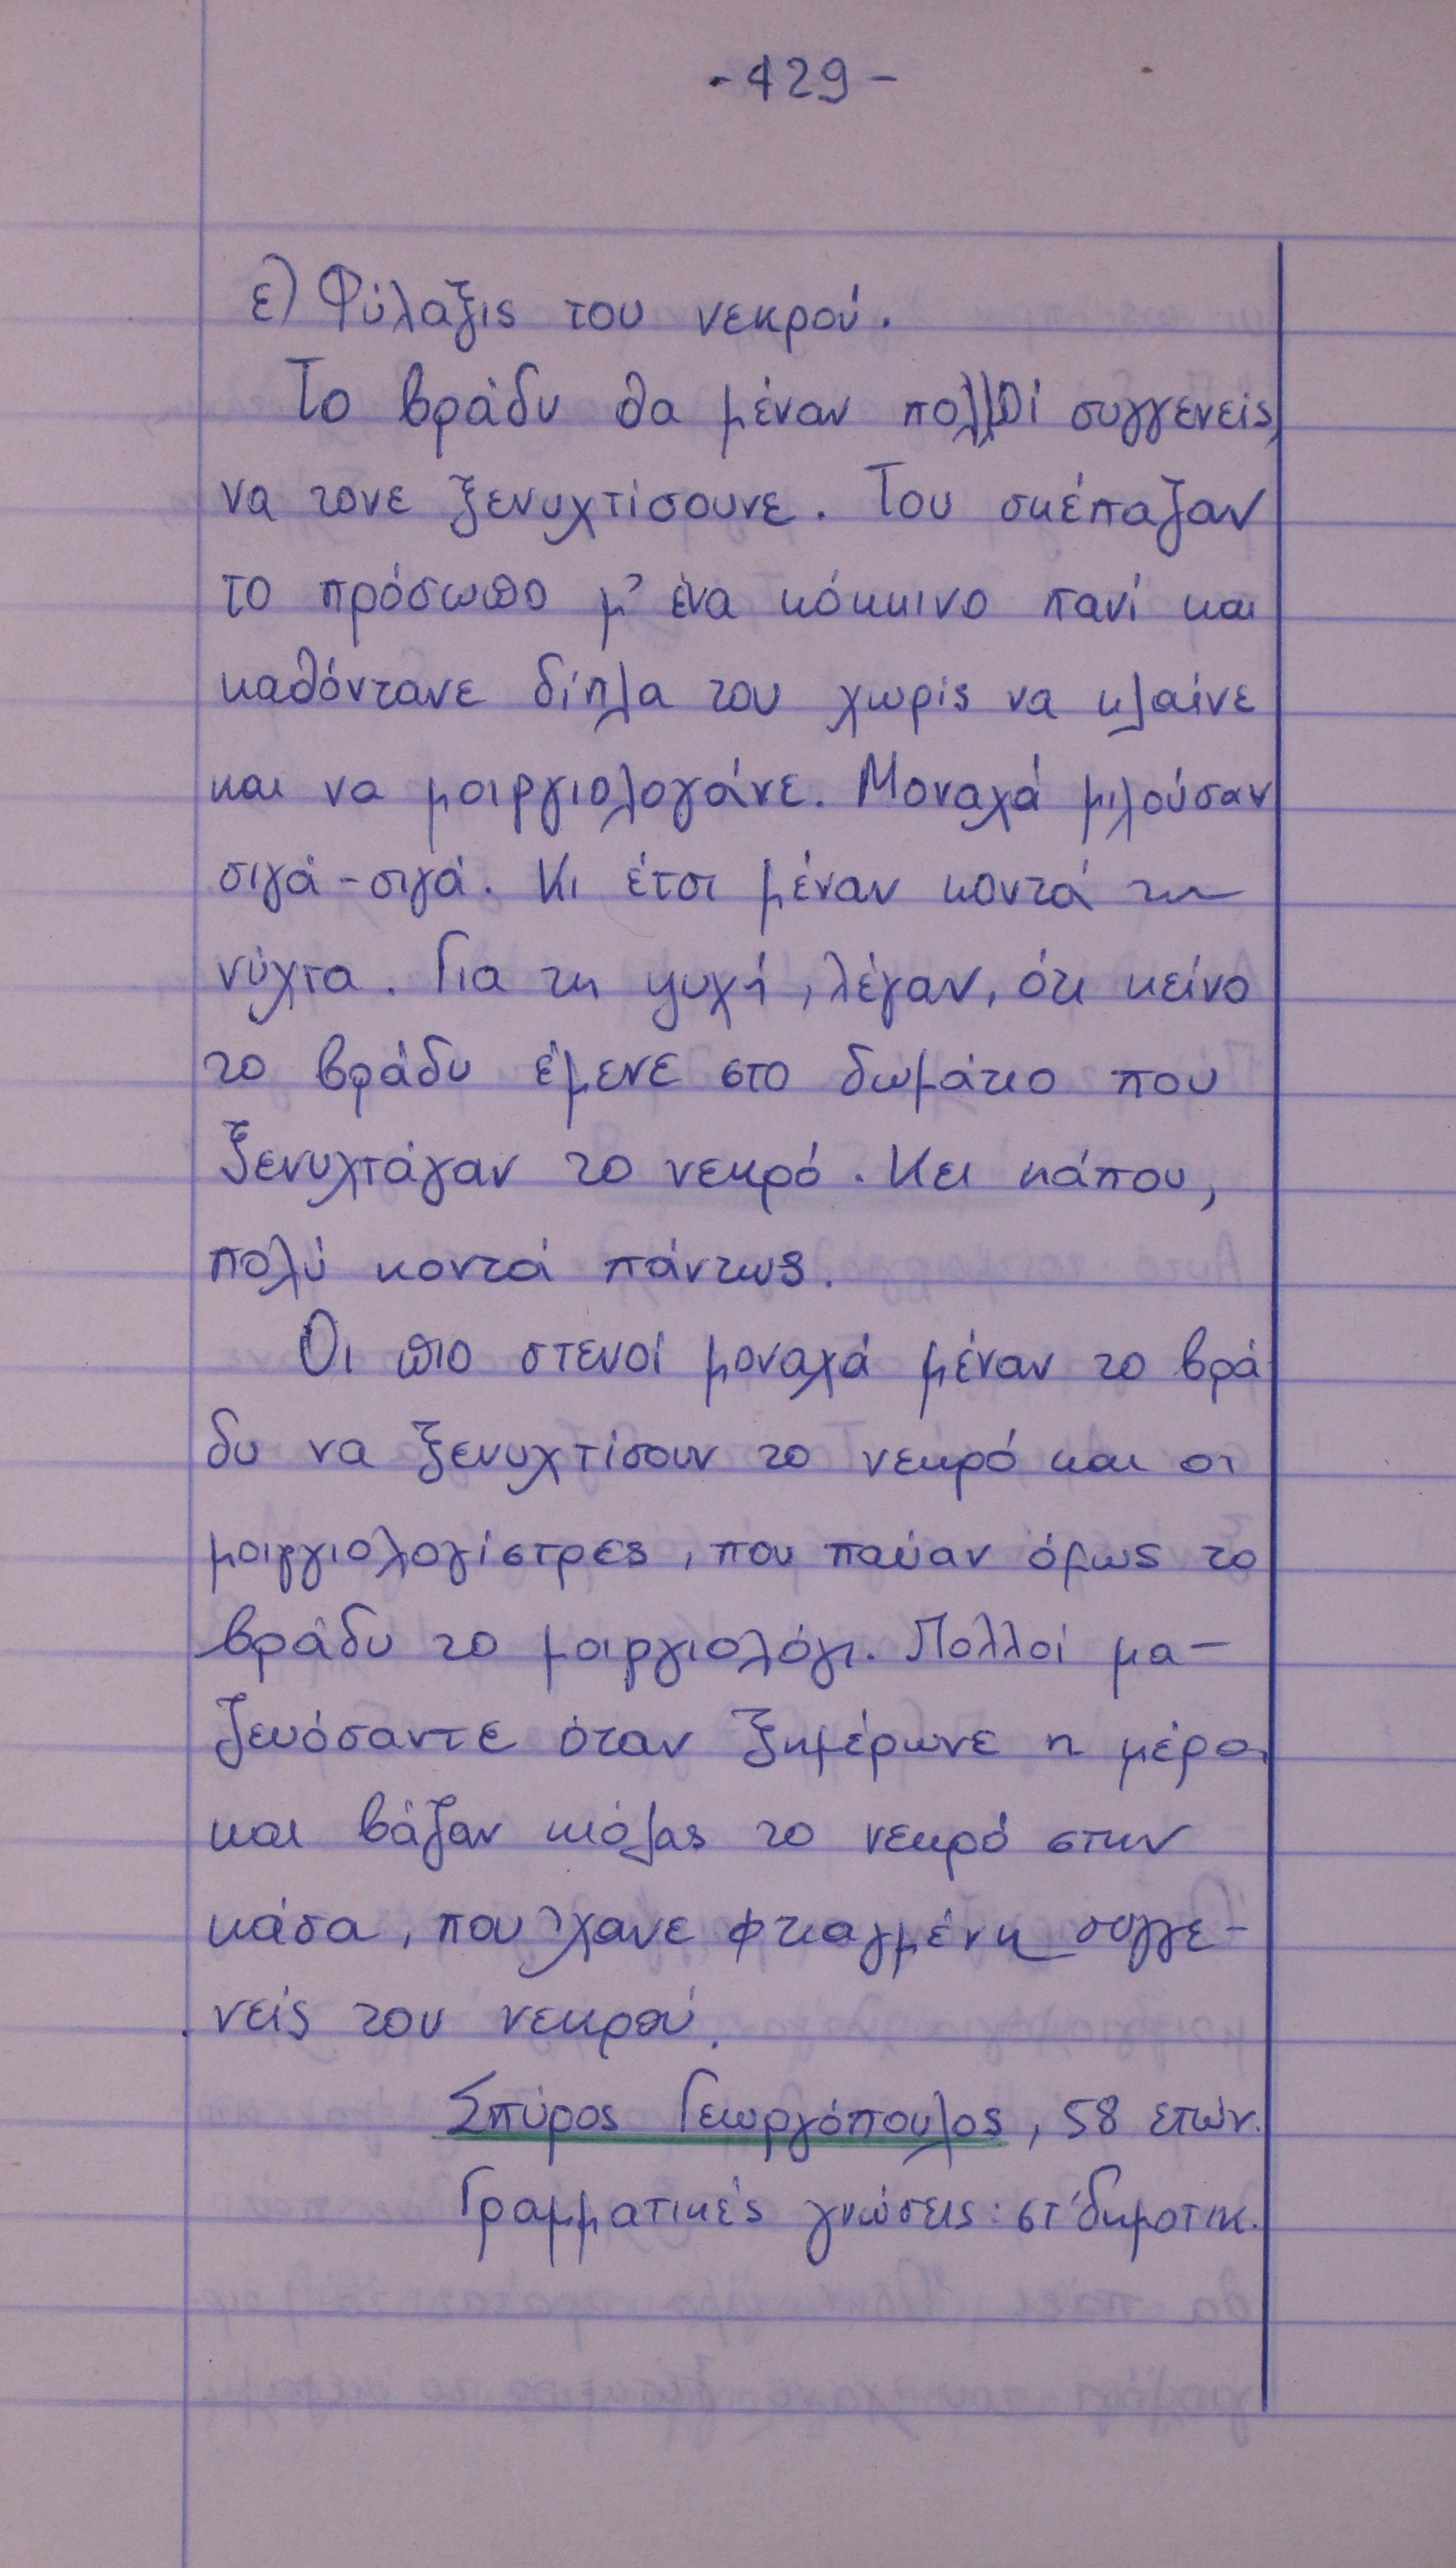 -429-
ε) Φύλαξις του νεκρού.
Το βράδυ θα μέναν πολλοί συγγενείς,
να τονε ξενυχτίσουνε. Του σκέπαζαν
το πρόσωπο μ' ένα κόκκινο πανί και
καθόντανε δίπλα του χωρίς να κλαίνε
και να μοιργιολογάνε. Μοναχά μιλούσαν
σιγά-σιγά. Κι έτσι μέναν κοντά τη
νύχτα. Για τη ψυχή, λέγαν, ότι κείνο
το βράδυ έμενε στο δωμάτιο που
ξενυχτάγαν το νεκρό. Κει κάπου,
πολύ κοντά πάντως.
Οι πιο στενοί μοναχά μέναν το βρά
δυ να ξενυχτίσουν το νεκρό και οι
μοιργιολογίστρες, που παύαν όμως το
βράδυ το μοιργιολόγι. Πολλοί μα-
ζευόσαντε όταν ξημέρωνε η μέρα
και βάζαν κιόλας το νεκρό στην
κάσα, που 'χανε φτιαγμένη συγγε-
νείς του νεκρού.
Σπύρος Γεωργόπουλος, 58 ετών.
Γραμματικές γνώσεις: στ' δημοτικ.